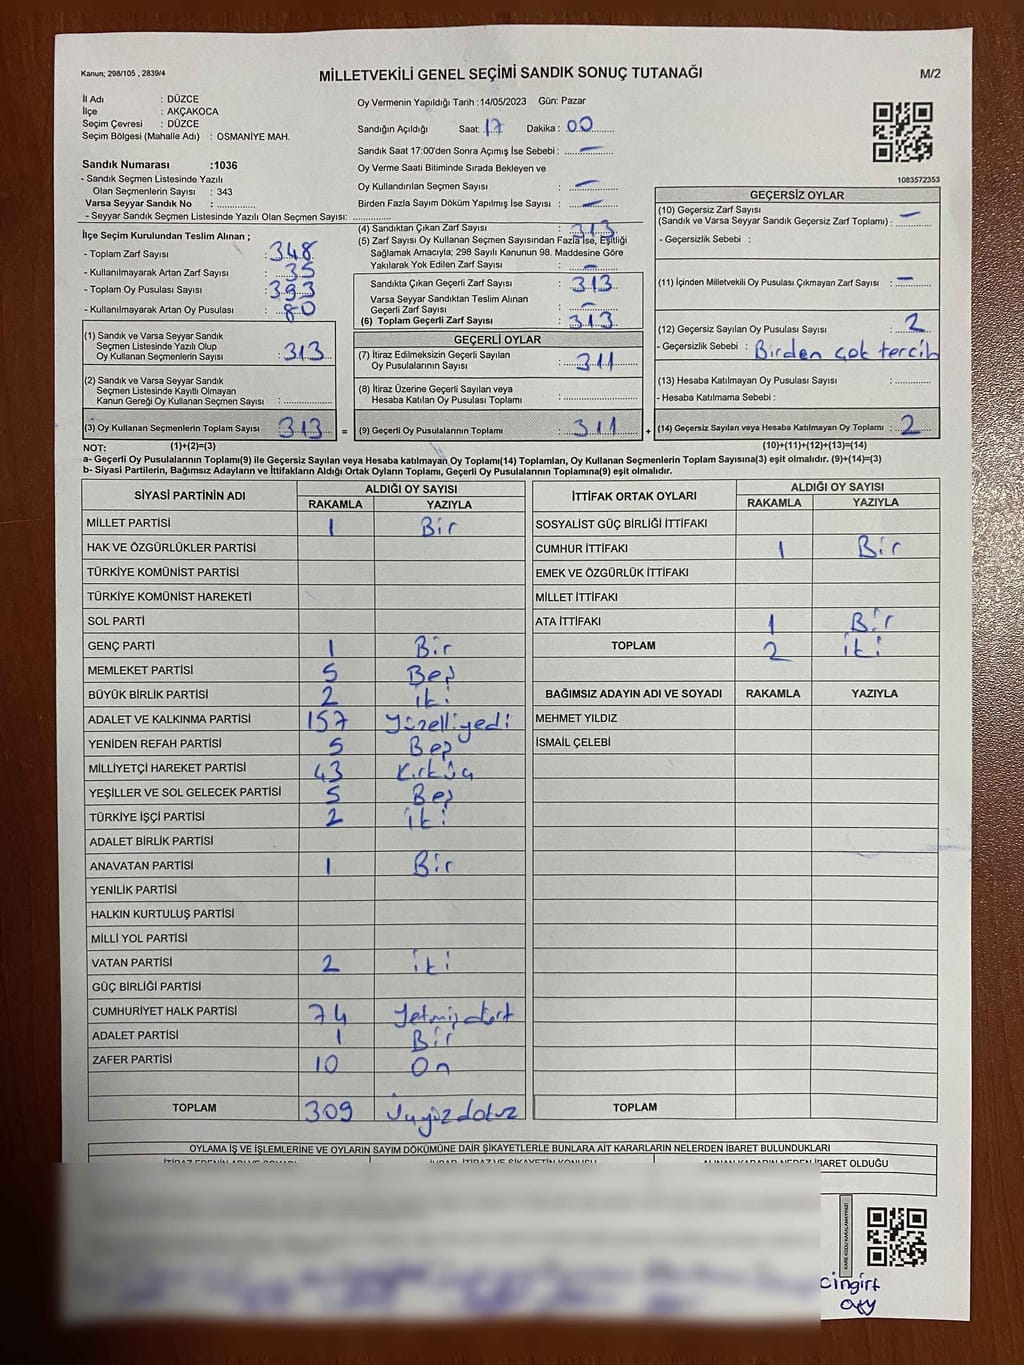 Kanun; 298/105 , 2839/4
MİLLETVEKİLİ GENEL SEÇİMİ SANDIK SONUÇ TUTANAĞI
M/2
İl Adı : DÜZCE
İlçe : AKÇAKOCA
Seçim Çevresi : DÜZCE
Seçim Bölgesi (Mahalle Adı) : OSMANİYE MAH.
Sandık Numarası :1036
- Sandık Seçmen Listesinde Yazılı
Olan Seçmenlerin Sayısı : 343
Varsa Seyyar Sandık No : ..............
- Seyyar Sandık Seçmen Listesinde Yazılı Olan Seçmen Sayısı: ..............
Oy Vermenin Yapıldığı Tarih :14/05/2023 Gün: Pazar
Sandığın Açıldığı Saat: 17 Dakika : 00
Sandık Saat 17:00'den Sonra Açımış İse Sebebi : —
Oy Verme Saati Bitiminde Sırada Bekleyen ve
Oy Kullandırılan Seçmen Sayısı : —
Birden Fazla Sayım Döküm Yapılmış İse Sayısı : —
1083572353
İlçe Seçim Kurulundan Teslim Alınan ;
- Toplam Zarf Sayısı : 348
- Kullanılmayarak Artan Zarf Sayısı : 35
- Toplam Oy Pusulası Sayısı : 393
- Kullanılmayarak Artan Oy Pusulası : 80
(1) Sandık ve Varsa Seyyar Sandık
Seçmen Listesinde Yazılı Olup
Oy Kullanan Seçmenlerin Sayısı : 313
(2) Sandık ve Varsa Seyyar Sandık
Seçmen Listesinde Kayıtlı Olmayan
Kanun Gereği Oy Kullanan Seçmen Sayısı : ..............
(3) Oy Kullanan Seçmenlerin Toplam Sayısı : 313 =
(4) Sandıktan Çıkan Zarf Sayısı : 313
(5) Zarf Sayısı Oy Kullanan Seçmen Sayısından Fazla İse, Eşitliği
Sağlamak Amacıyla; 298 Sayılı Kanunun 98. Maddesine Göre
Yakılarak Yok Edilen Zarf Sayısı : —
Sandıkta Çıkan Geçerli Zarf Sayısı : 313
Varsa Seyyar Sandıktan Teslim Alınan
Geçerli Zarf Sayısı : —
(6) Toplam Geçerli Zarf Sayısı : 313
GEÇERLİ OYLAR
(7) İtiraz Edilmeksizin Geçerli Sayılan
Oy Pusulalarının Sayısı : 311
(8) İtiraz Üzerine Geçerli Sayılan veya
Hesaba Katılan Oy Pusulası Toplamı : ..............
(9) Geçerli Oy Pusulalarının Toplamı : 311 +
GEÇERSİZ OYLAR
(10) Geçersiz Zarf Sayısı
(Sandık ve Varsa Seyyar Sandık Geçersiz Zarf Toplamı) : —
- Geçersizlik Sebebi :
(11) İçinden Milletvekili Oy Pusulası Çıkmayan Zarf Sayısı : —
(12) Geçersiz Sayılan Oy Pusulası Sayısı : 2
- Geçersizlik Sebebi : Birden çok tercih
(13) Hesaba Katılmayan Oy Pusulası Sayısı : ..............
- Hesaba Katılmama Sebebi :
(14) Geçersiz Sayılan veya Hesaba Katılmayan Oy Toplamı : 2
NOT: (1)+(2)=(3)
(10)+(11)+(12)+(13)=(14)
a- Geçerli Oy Pusulalarının Toplamı(9) ile Geçersiz Sayılan veya Hesaba katılmayan Oy Toplamı(14) Toplamları, Oy Kullanan Seçmenlerin Toplam Sayısına(3) eşit olmalıdır. (9)+(14)=(3)
b- Siyasi Partilerin, Bağımsız Adayların ve İttifakların Aldığı Ortak Oyların Toplamı, Geçerli Oy Pusulalarının Toplamına(9) eşit olmalıdır.
SİYASİ PARTİNİN ADI ALDIĞI OY SAYISI
RAKAMLA YAZIYLA
MİLLET PARTİSİ 1 Bir
HAK VE ÖZGÜRLÜKLER PARTİSİ
TÜRKİYE KOMÜNİST PARTİSİ
TÜRKİYE KOMÜNİST HAREKETİ
SOL PARTİ
GENÇ PARTİ 1 Bir
MEMLEKET PARTİSİ 5 Beş
BÜYÜK BİRLİK PARTİSİ 2 iki
ADALET VE KALKINMA PARTİSİ 157 Yüzelliyedi
YENİDEN REFAH PARTİSİ 5 Beş
MİLLİYETÇİ HAREKET PARTİSİ 43 Kırküç
YEŞİLLER VE SOL GELECEK PARTİSİ 5 Beş
TÜRKİYE İŞÇİ PARTİSİ 2 iki
ADALET BİRLİK PARTİSİ
ANAVATAN PARTİSİ 1 Bir
YENİLİK PARTİSİ
HALKIN KURTULUŞ PARTİSİ
MİLLİ YOL PARTİSİ
VATAN PARTİSİ 2 iki
GÜÇ BİRLİĞİ PARTİSİ
CUMHURİYET HALK PARTİSİ 74 Yetmişdört
ADALET PARTİSİ 1 Bir
ZAFER PARTİSİ 10 On
TOPLAM 309 Üçyüzdokuz
İTTİFAK ORTAK OYLARI ALDIĞI OY SAYISI
RAKAMLA YAZIYLA
SOSYALİST GÜÇ BİRLİĞİ İTTİFAKI
CUMHUR İTTİFAKI 1 Bir
EMEK VE ÖZGÜRLÜK İTTİFAKI
MİLLET İTTİFAKI
ATA İTTİFAKI 1 Bir
TOPLAM 2 iki
BAĞIMSIZ ADAYIN ADI VE SOYADI RAKAMLA YAZIYLA
MEHMET YILDIZ
İSMAİL ÇELEBİ
TOPLAM
OYLAMA İŞ VE İŞLEMLERİNE VE OYLARIN SAYIM DÖKÜMÜNE DAİR ŞİKAYETLERLE BUNLARA AİT KARARLARIN NELERDEN İBARET BULUNDUKLARI
İBARET OLDUĞU